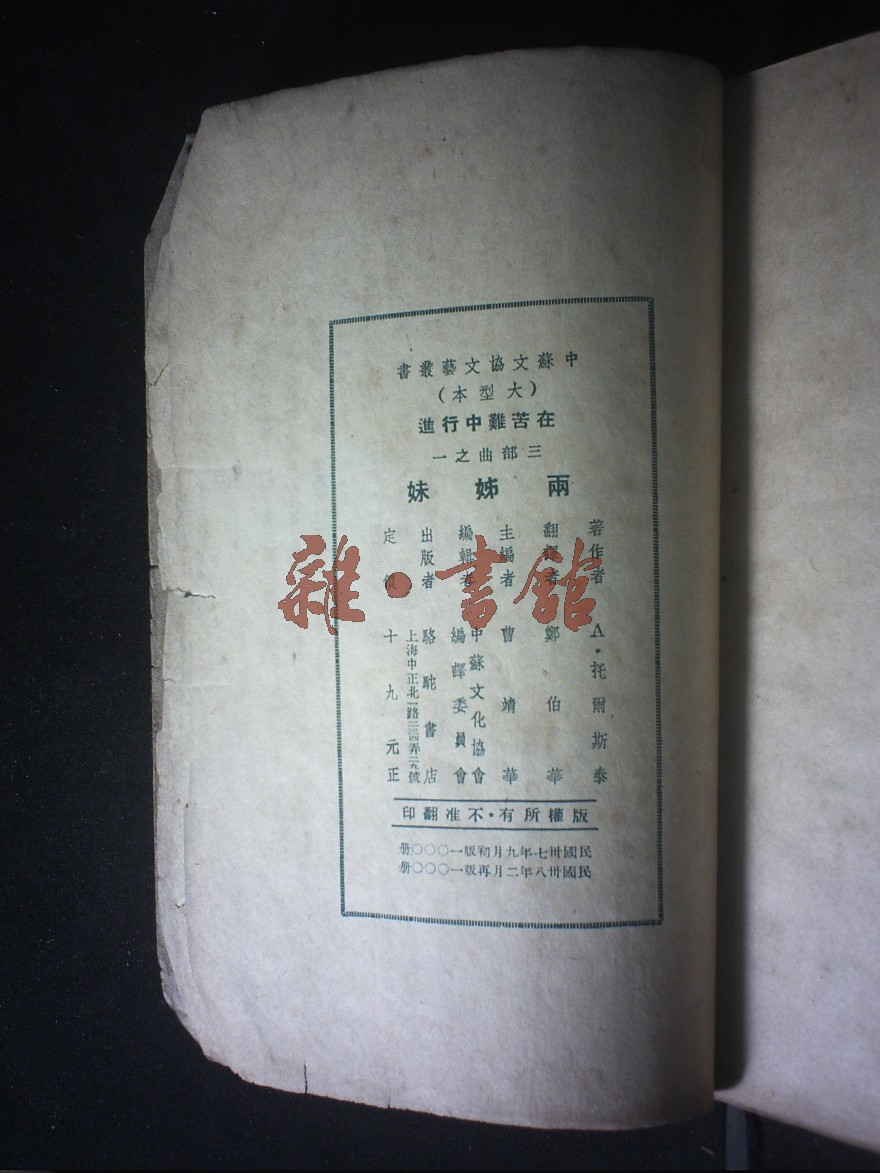 中蘇文協文藝叢書
(大型本)
在苦難中行進
三部曲之一
兩姊妹
著作者 A·托爾斯泰
翻譯者 鄭伯華
主編者 曹靖華
編輯者 中蘇文化協會
編譯委員會
出版者 駱駝書店
上海中正北一路三四弄二九號
定價 十九元正
版權所有·不准翻印
民國卅七年九月初版一〇〇〇册
民國卅八年二月再版一〇〇〇册
雜·書館